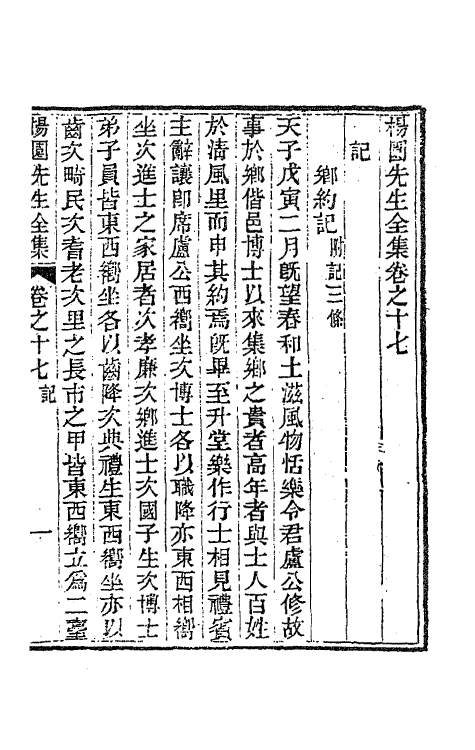 楊園先生全集卷之十七
記
鄉約記附記三條
天子戊寅二月旣望春和土滋風物恬樂令君盧公修故
事於鄉偕邑博士以來集鄉之貴者高年者與士人百姓
於清風里而申其約焉旣畢至升堂樂作行士相見禮賓
主辭讓卽席盧公西嚮坐次博士各以職降亦東西相嚮
坐次進士之家居者次孝廉次鄉進士次國子生次博士
弟子員皆東西嚮坐各以齒降次典禮生東西嚮坐亦以
齒次畸民次耆老次里之長市之甲皆東西嚮立爲二臺
楊園先生全集 卷之十七 記 一